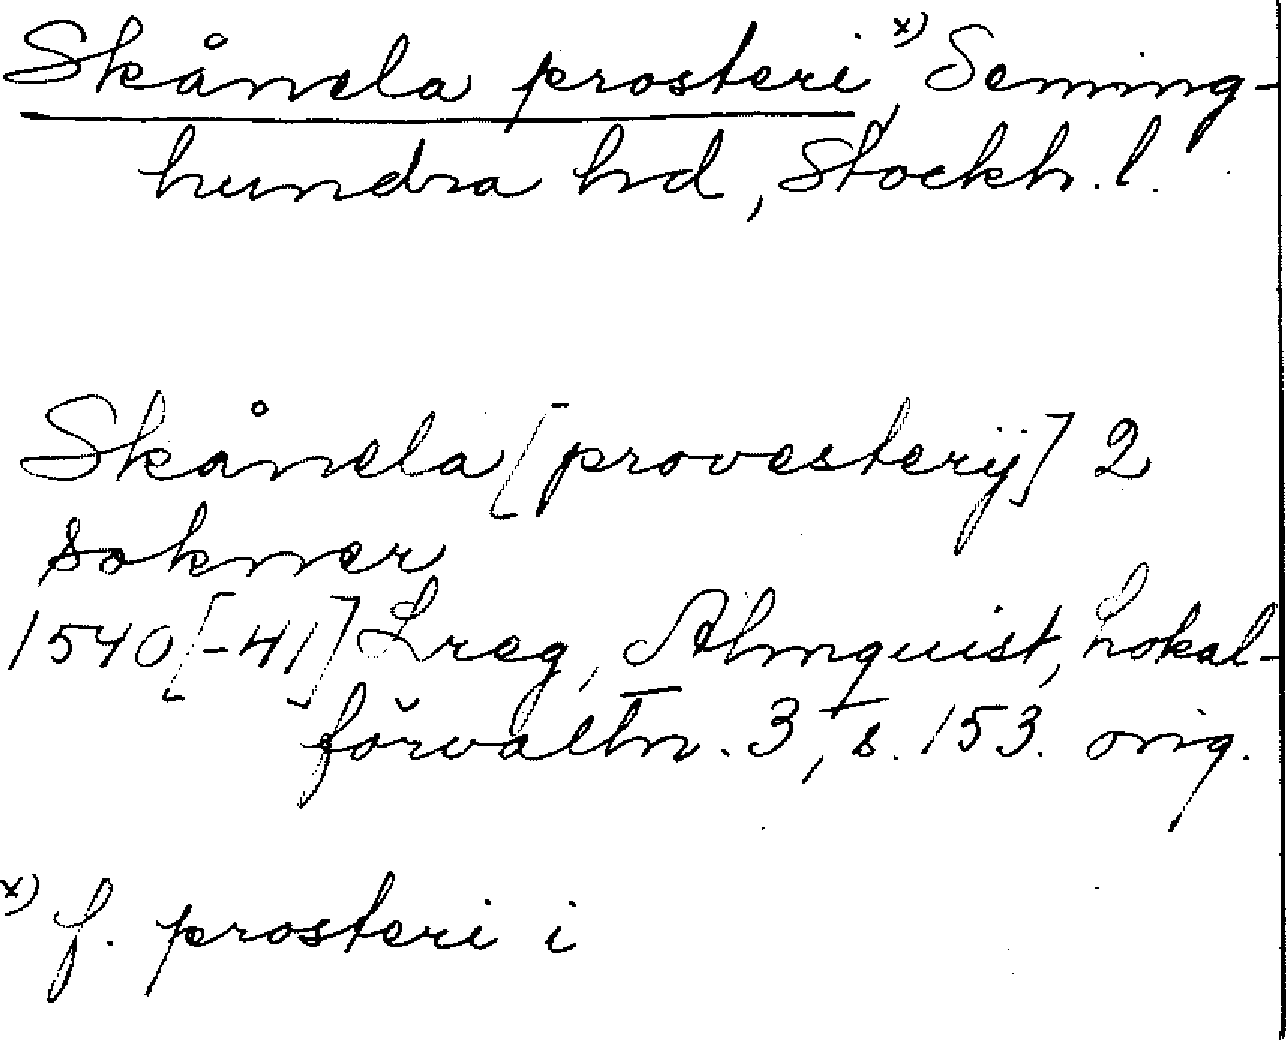 Skånela prosteri,ˣ⁾ Seming-
hundra hd, Stockh. l.
Skånela [provesterÿ] 2
sokner
1540[-41] Lreg, Almquist, Lokal-
förvaltn. 3, s. 153. orig.
ˣ⁾ f. prosteri i